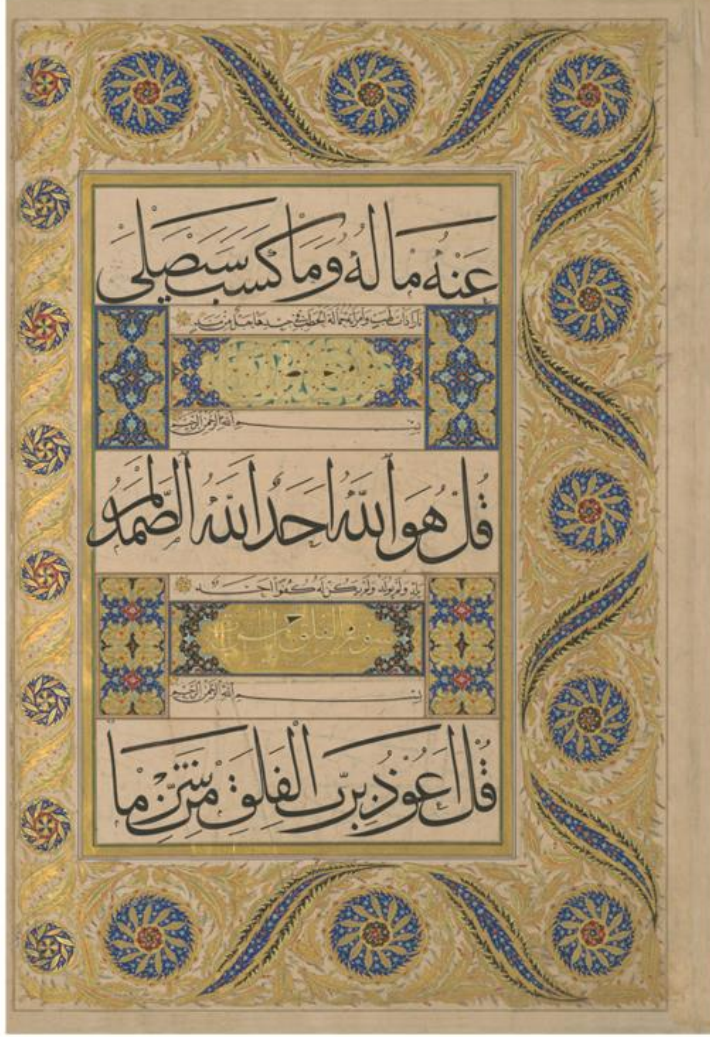 عَنْهُ مَا لُهُ وَمَا كَسَبَ سَيَصْلَى
نَارًا ذَاتَ لَهَبٍ وَامْرَأَتُهُ حَمَّالَةَ الْحَطَبِ فِي جِيدِهَا حَبْلٌ مِنْ مَسَدٍ
بِسْمِ اللَّهِ الرَّحْمَنِ الرَّحِيمِ
قُلْ هُوَ اللَّهُ اَحَدٌ اَللَّهُ الصَّمَدُ لَمْ
يَلِدْ وَلَمْ يُولَدْ وَلَمْ يَكُنْ لَهُ كُفُوًا اَحَدٌ
سورة الفلق
بِسْمِ اللَّهِ الرَّحْمَنِ الرَّحِيمِ
قُلْ اَعُوذُ بِرَبِّ الْفَلَقِ مِنْ شَرِّ مَا